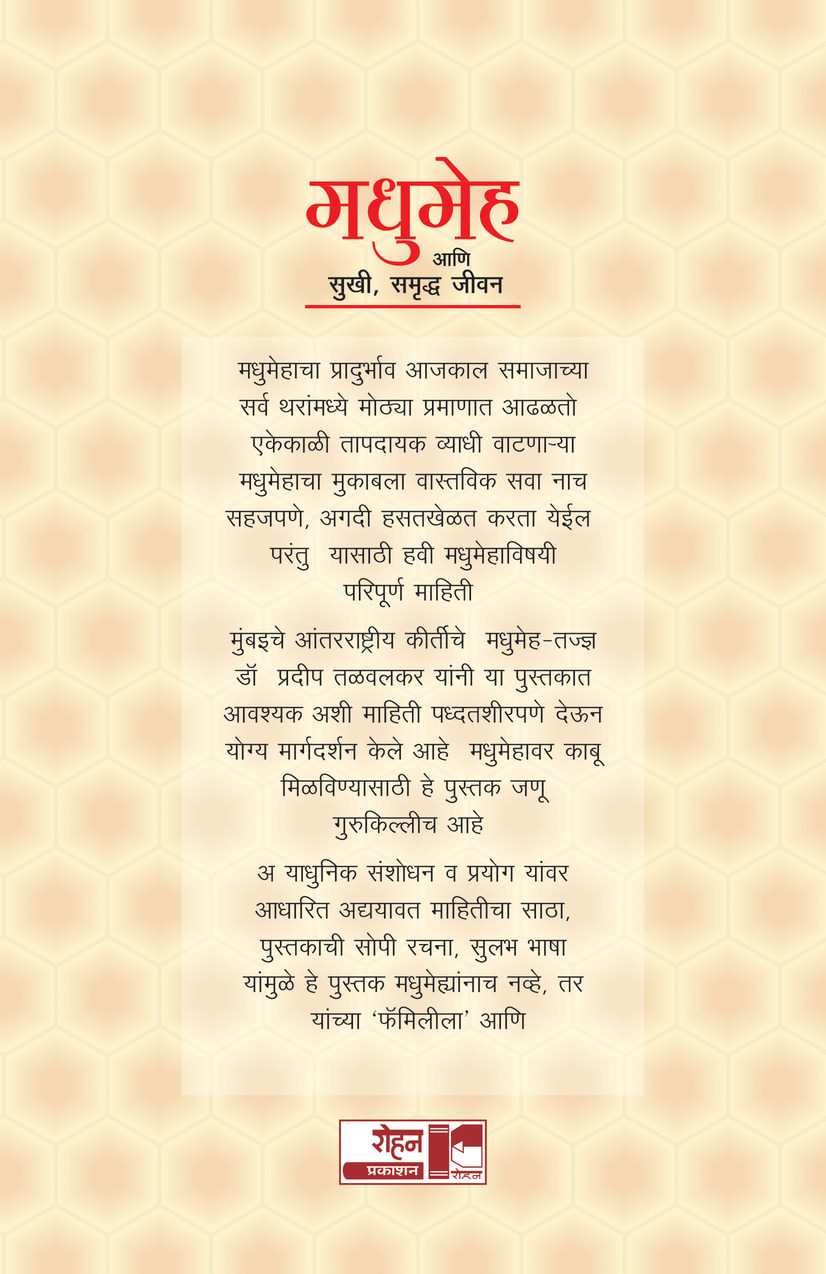 मधुमेह
आणि
सुखी, समृद्ध जीवन
मधुमेहाचा प्रादुर्भाव आजकाल समाजाच्या
सर्व थरांमध्ये मोठ्या प्रमाणात आढळतो
एकेकाळी तापदायक व्याधी वाटणाऱ्या
मधुमेहाचा मुकाबला वास्तविक सवा नाच
सहजपणे, अगदी हसतखेळत करता येईल
परंतु यासाठी हवी मधुमेहाविषयी
परिपूर्ण माहिती
मुंबइचे आंतरराष्ट्रीय कीर्तीचे मधुमेह-तज्ज्ञ
डॉ प्रदीप तळवलकर यांनी या पुस्तकात
आवश्यक अशी माहिती पध्दतशीरपणे देऊन
योग्य मार्गदर्शन केले आहे मधुमेहावर काबू
मिळविण्यासाठी हे पुस्तक जणू
गुरुकिल्लीच आहे
अ याधुनिक संशोधन व प्रयोग यांवर
आधारित अद्ययावत माहितीचा साठा,
पुस्तकाची सोपी रचना, सुलभ भाषा
यांमुळे हे पुस्तक मधुमेह्यांनाच नव्हे, तर
यांच्या ‘फॅमिलीला’ आणि
रोहन
प्रकाशन
रोहन